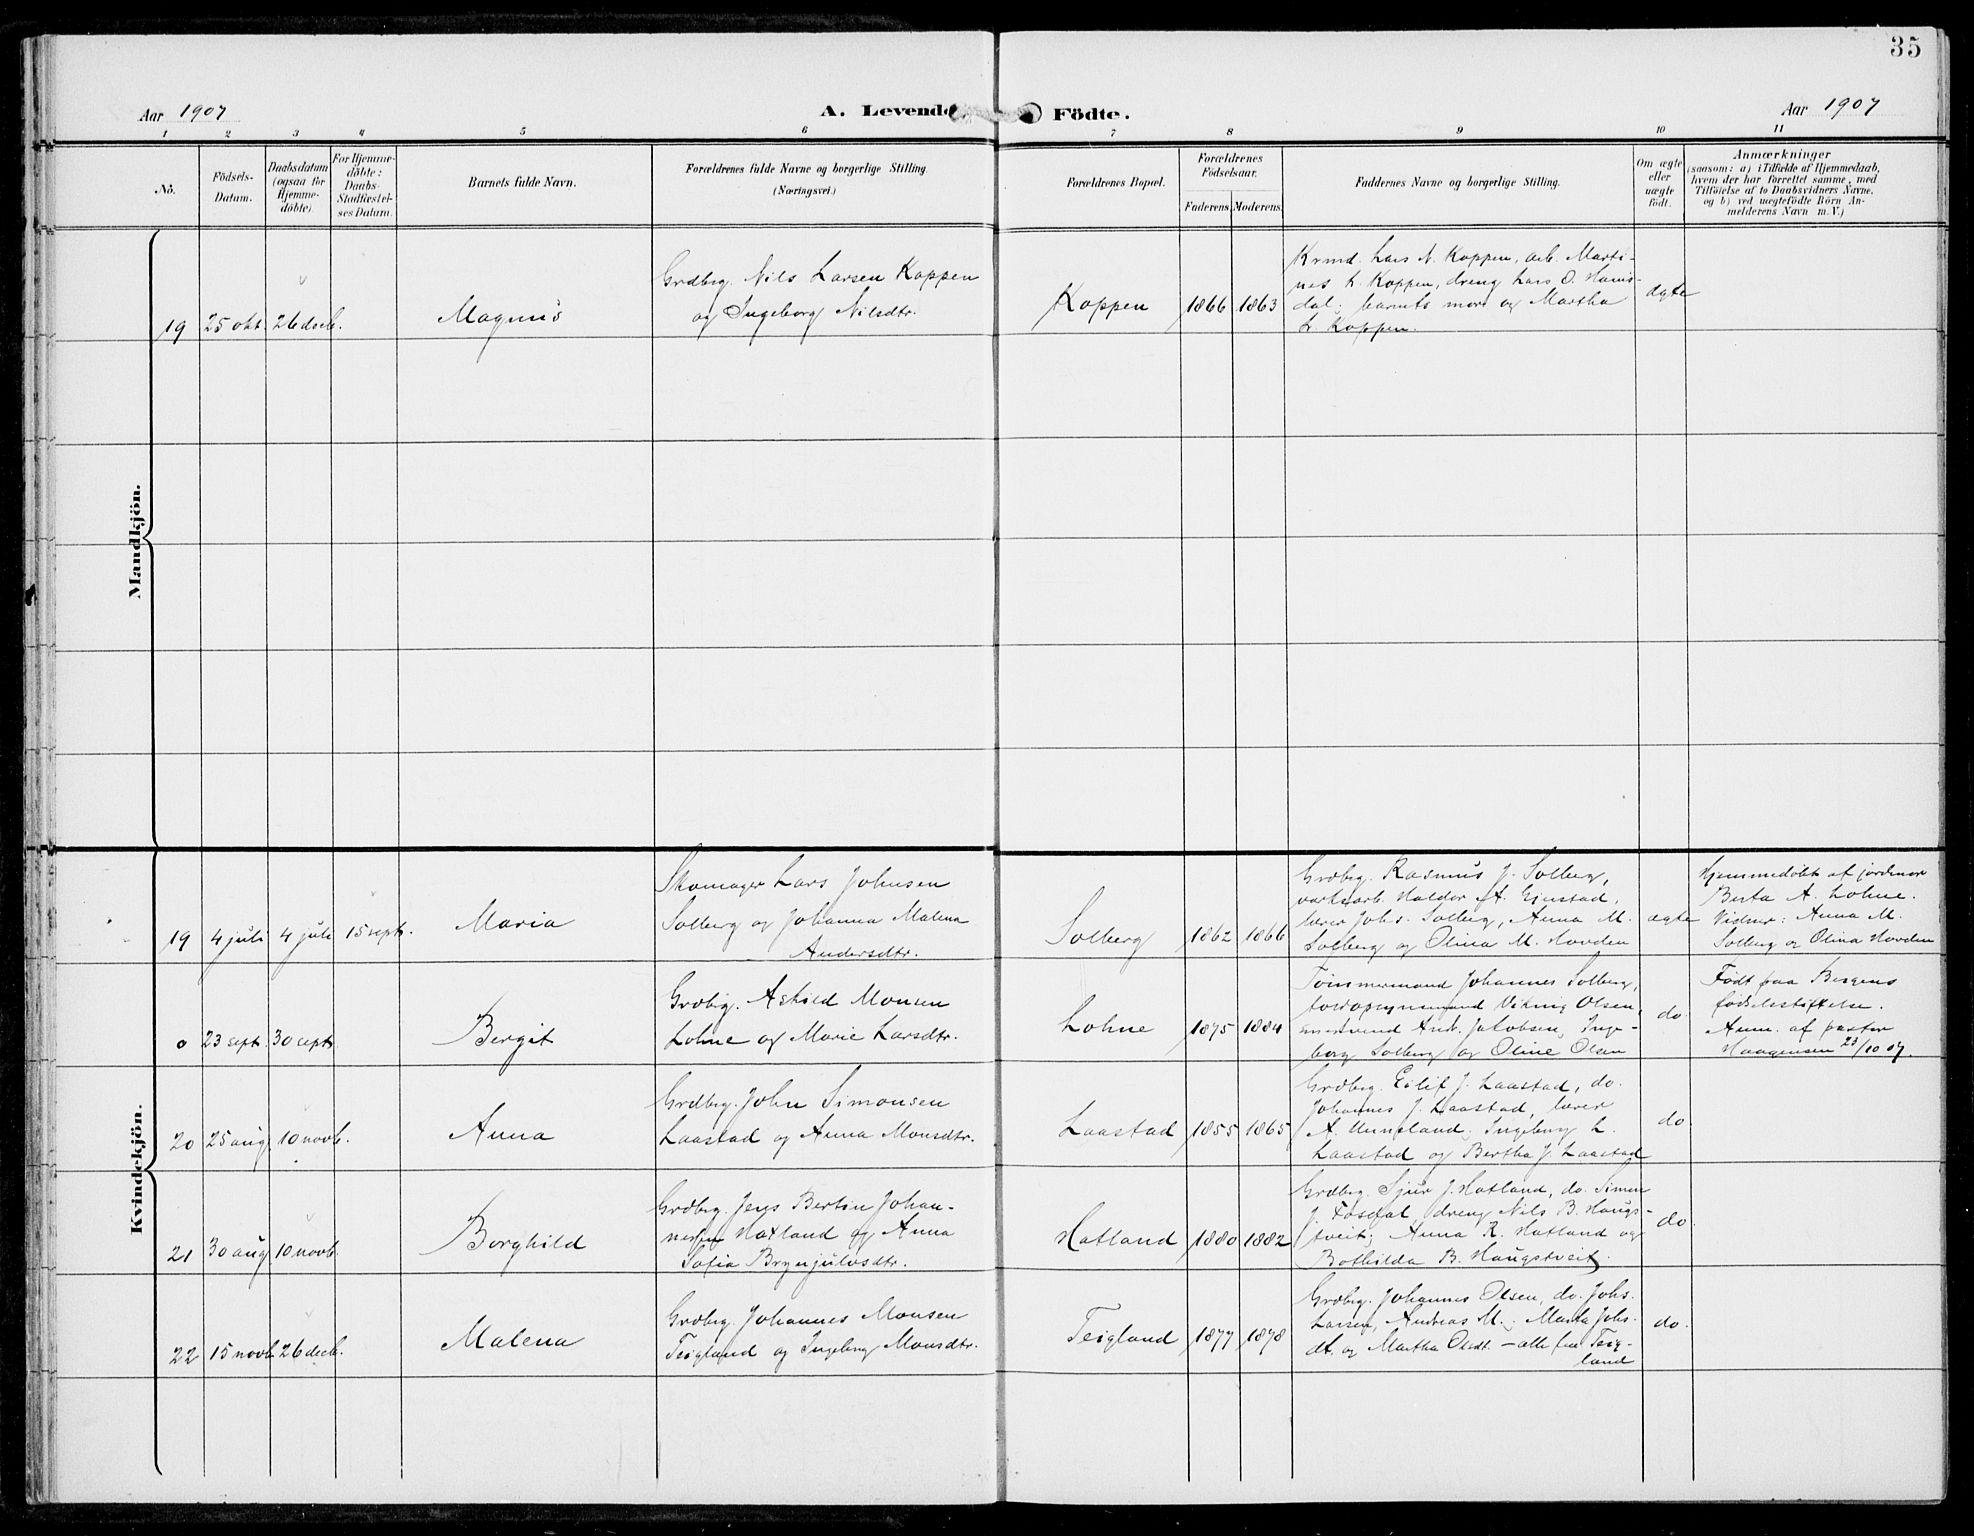 35
Aar 1907
A. Levende Födte.
Aar 1907
1 2 3 4 5 6 7 8 9 10 11
No.
Födsels-
Datum.
Daabsdatum
(ogsaa for
Hjemme-
döbte).
For Hjemme-
döbte:
Daabs-
Stadfæstel-
ses Datum.
Barnets fulde Navn.
Forældrenes fulde Navne og borgerlige Stilling.
(Næringsvei.)
Forældrenes Bopæl.
Forældrenes
Födselsaar.
Faderens. Moderens.
Faddernes Navne og borgerlige Stilling.
Om ægte
eller
uægte
födt.
Anmærkninger
(saasom: a) i Tilfælde af Hjemmedaab,
hvem der har forrettet samme, med
Tilföielse af to Daabsvidners Navne,
og b) ved uægtefödte Börn An-
melderens Navn m. V.)
Mandkjön.
19 25 okt. 26 decb.
Magnus
Grdbrg. Nils Larsen Koppen
og Ingeborg Nilsdtr.
Koppen
1866 1863
Krmd. Lars N. Koppen, arb. Marti-
nes L. Koppen, dreng Lars O. Hams-
dal; barnets mor og Martha
L. Koppen.
ægte
Kvindekjön.
19 4 juli 4 juli 15 septr.
Maria
Skomager Lars Johnsen
Solberg og Johanna Malena
Andersdtr.
Solberg
1862 1866
Grdbrg. Rasmus J. Solberg,
Haldor A.
lærer Johs. Solberg, Anna M.
Solberg og Olina M. Hovden
ægte
Hjemmedøbt af jordmor
Berta A. Lohne.
Vidner: Anna M.
Solberg og Olina Hovden
0 23 sept. 30 septr
Bergit
Grdbrg. Askild Monsen
Lohne og Marie Larsdtr.
Lohne
1875 1884
Tømmermand Johannes Solberg,
Olsen,
Jakobsen, Inge-
borg Solberg og Oline Olsen
do.
Født paa Bergens
fødselsstiftelse.
Anm. af pastor
Haagensen 23/10 07.
20 25 aug. 10 novb.
Anna
Grdbrg. John Simonsen
Laastad og Anna Monsdtr.
Laastad
1855 1865
Grdbrg. Eilif J. Laastad, do.
Johannes J. Laastad, lærer
A. Unneland; Ingeborg L.
Laastad og Bertha J. Laastad
do.
21 30 aug. 10 novb.
Borghild
Grdbrg. Jens Bertin Johan-
nesen Hatland og Anna
Sofia Brynjulvsdtr.
Hatland
1880 1882
Grdbrg. Sjur J. Hatland, do. Simon
J. Fosdal, dreng Nils B. Haugs-
tveit; Anna R. Hatland og
Bothilda B. Haugstveit.
do.
22 15 novb. 26 decb.
Malena
Grdbrg. Johannes Monsen
Teigland og Ingeborg Monsdtr.
Teigland
1877 1878
Grdbrg. Johannes Olsen, do. Johs.
Larsen, Andreas M.; Marta Johs.
dt. og Martha Olsdt. – alle fra Teig-
land
do.